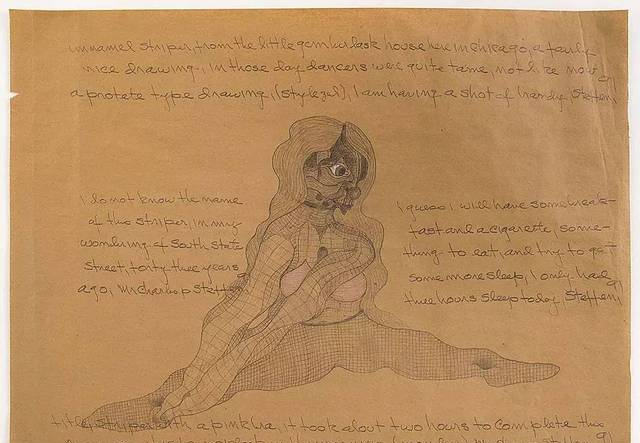 unnamed striper, from the little gem burlask house here in Chicago, a fairly
nice drawing, in those day dancers were quite tame, not like now
a protate type drawing, (stylezed), I am having a shot of brandy, Steffen,
I do not know the name
of this striper, in my
wondering of South State
Street, forty thee years
ago, Mr Charles p Steffen
I guess I will have some break-
fast and a cigarette, some-
thing to eat, and try to get
some more sleep, I only had
thee hours sleep today, Steffen,
title, striper with a pink bra, it took about two hours to complete this